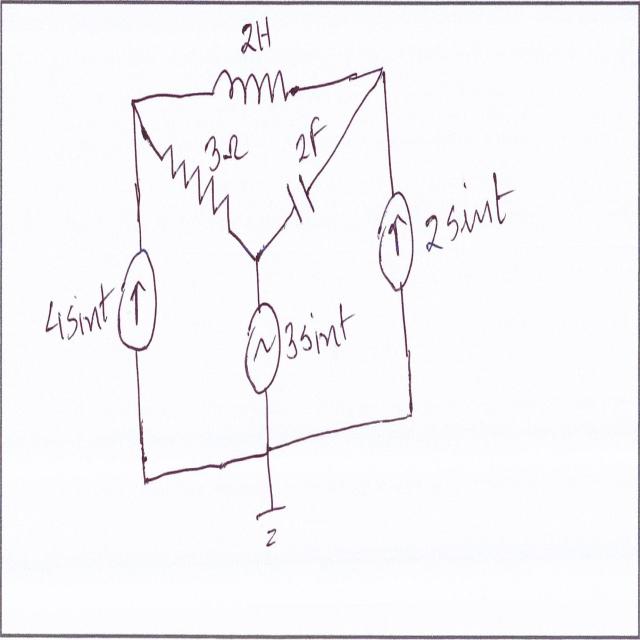 2H
3Ω
2F
2sint
4sint
3sint